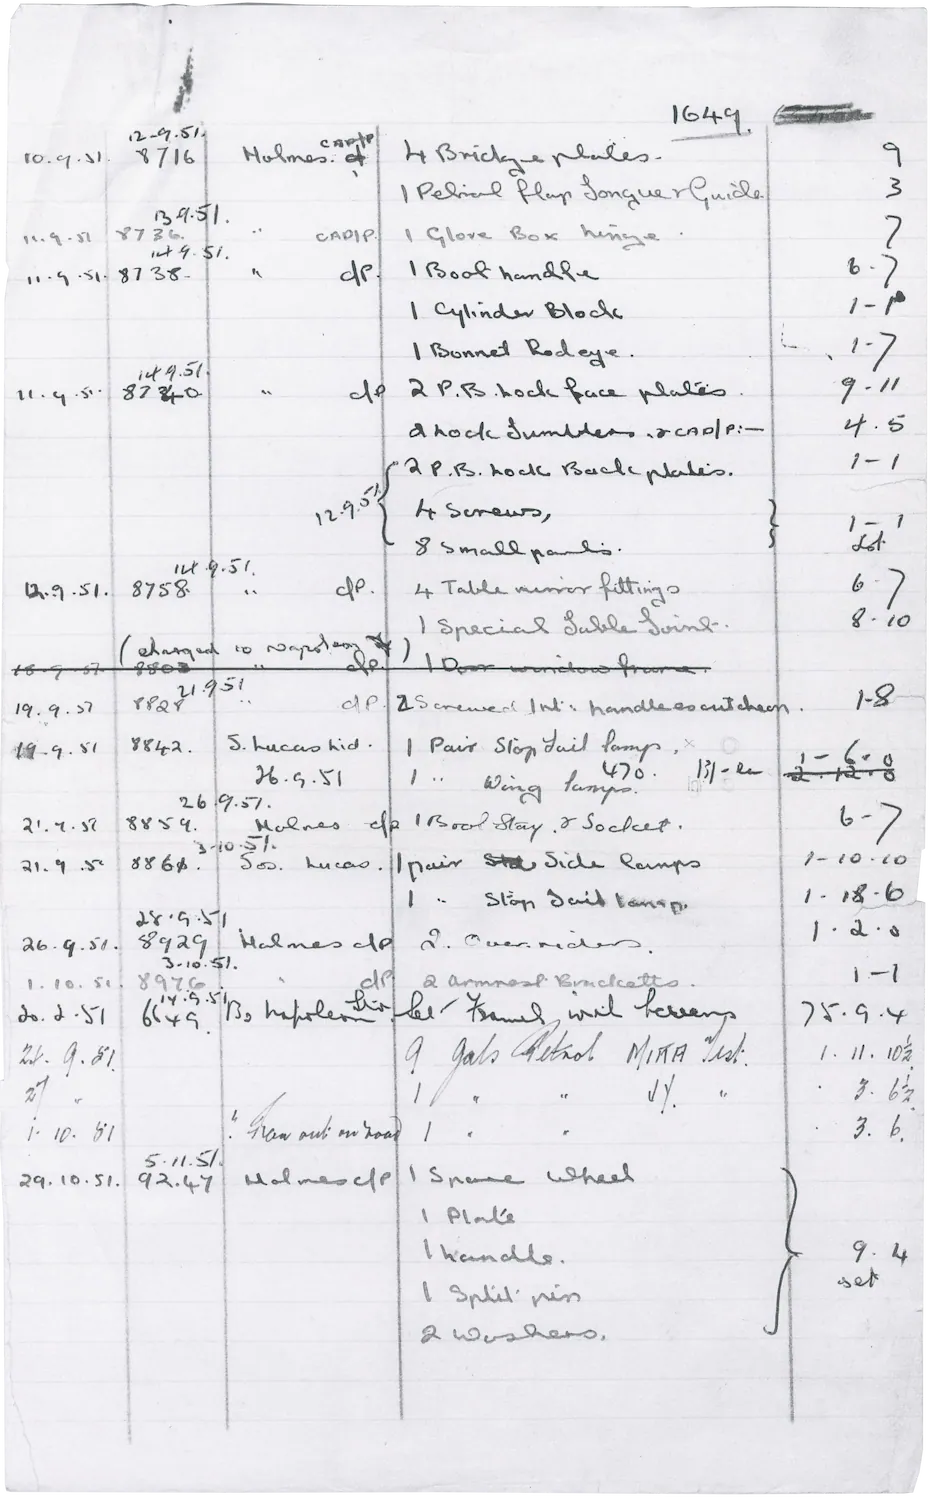 1649.
12-9.51. CAD/P
10.9.51. 8716 Holmes. 4 Bridge plates. 9
1 Petrol flap Tongue & Guide 3
13.9.51.
11.9.51 8736 " CAD/P. 1 Glove Box hinge. 7
14.9.51.
11.9.51. 8738. " c/P. 1 Boot handle 6-7
1 Cylinder Block 1-1
1 Bonnet Rod eye. 1-7
14.9.51.
11.9.51 8740 " c/P 2 P.B. Lock face plates. 9-11
2 Lock Tumblers. & CAD/P:— 4.5
2 P.B. Lock Back plates. 1-1
12.9.51 4 Screws, 1-1
8 Small parts. Lot
14.9.51.
12.9.51. 8758 " c/P. 4 Table mirror fittings 6-7
1 Special Table Joint. 8-10
(charged to Napoleon)
18.9.51 8803 " c/P. 1 Door window frame.
21.9.51
19.9.51 8828 " c/P. 2 Screwed Int. handle escutcheon. 1-8
19.9.51 8842. J. Lucas Ltd. 1 Pair Stop Tail lamps. x 1-6-0
26.9.51 1 " Wing lamps. 470. 13/- ea 2-12-0
26.9.51.
21.9.51 8859. Holmes c/P 1 Boot Stay & Socket. 6-7
3-10.51.
21.9.51 8860. Jos. Lucas. 1 pair Side lamps 1-10-10
1 " Stop Tail lamp. 1-18-6
28.9.51
26.9.51. 8929 Holmes c/P 2. Over-riders. 1.2.0
3-10.51.
1.10.51 8976 " c/P 2 Armrest Bracketts. 1-1
14.9.51
20.2.51 6649 Napoleon Set Frames with Screens 75.9.4
21.9.51. 9 gals Petrol MIRA Test. 1.11.10½
27 " 1 " " " 3.6½
1.10.51 " Gran out on road 1 " " 3.6.
5.11.51.
29.10.51. 9247 Holmes c/P 1 Spare Wheel
1 Plate
1 handle. 9.4
1 Split pin set
2 Washers.